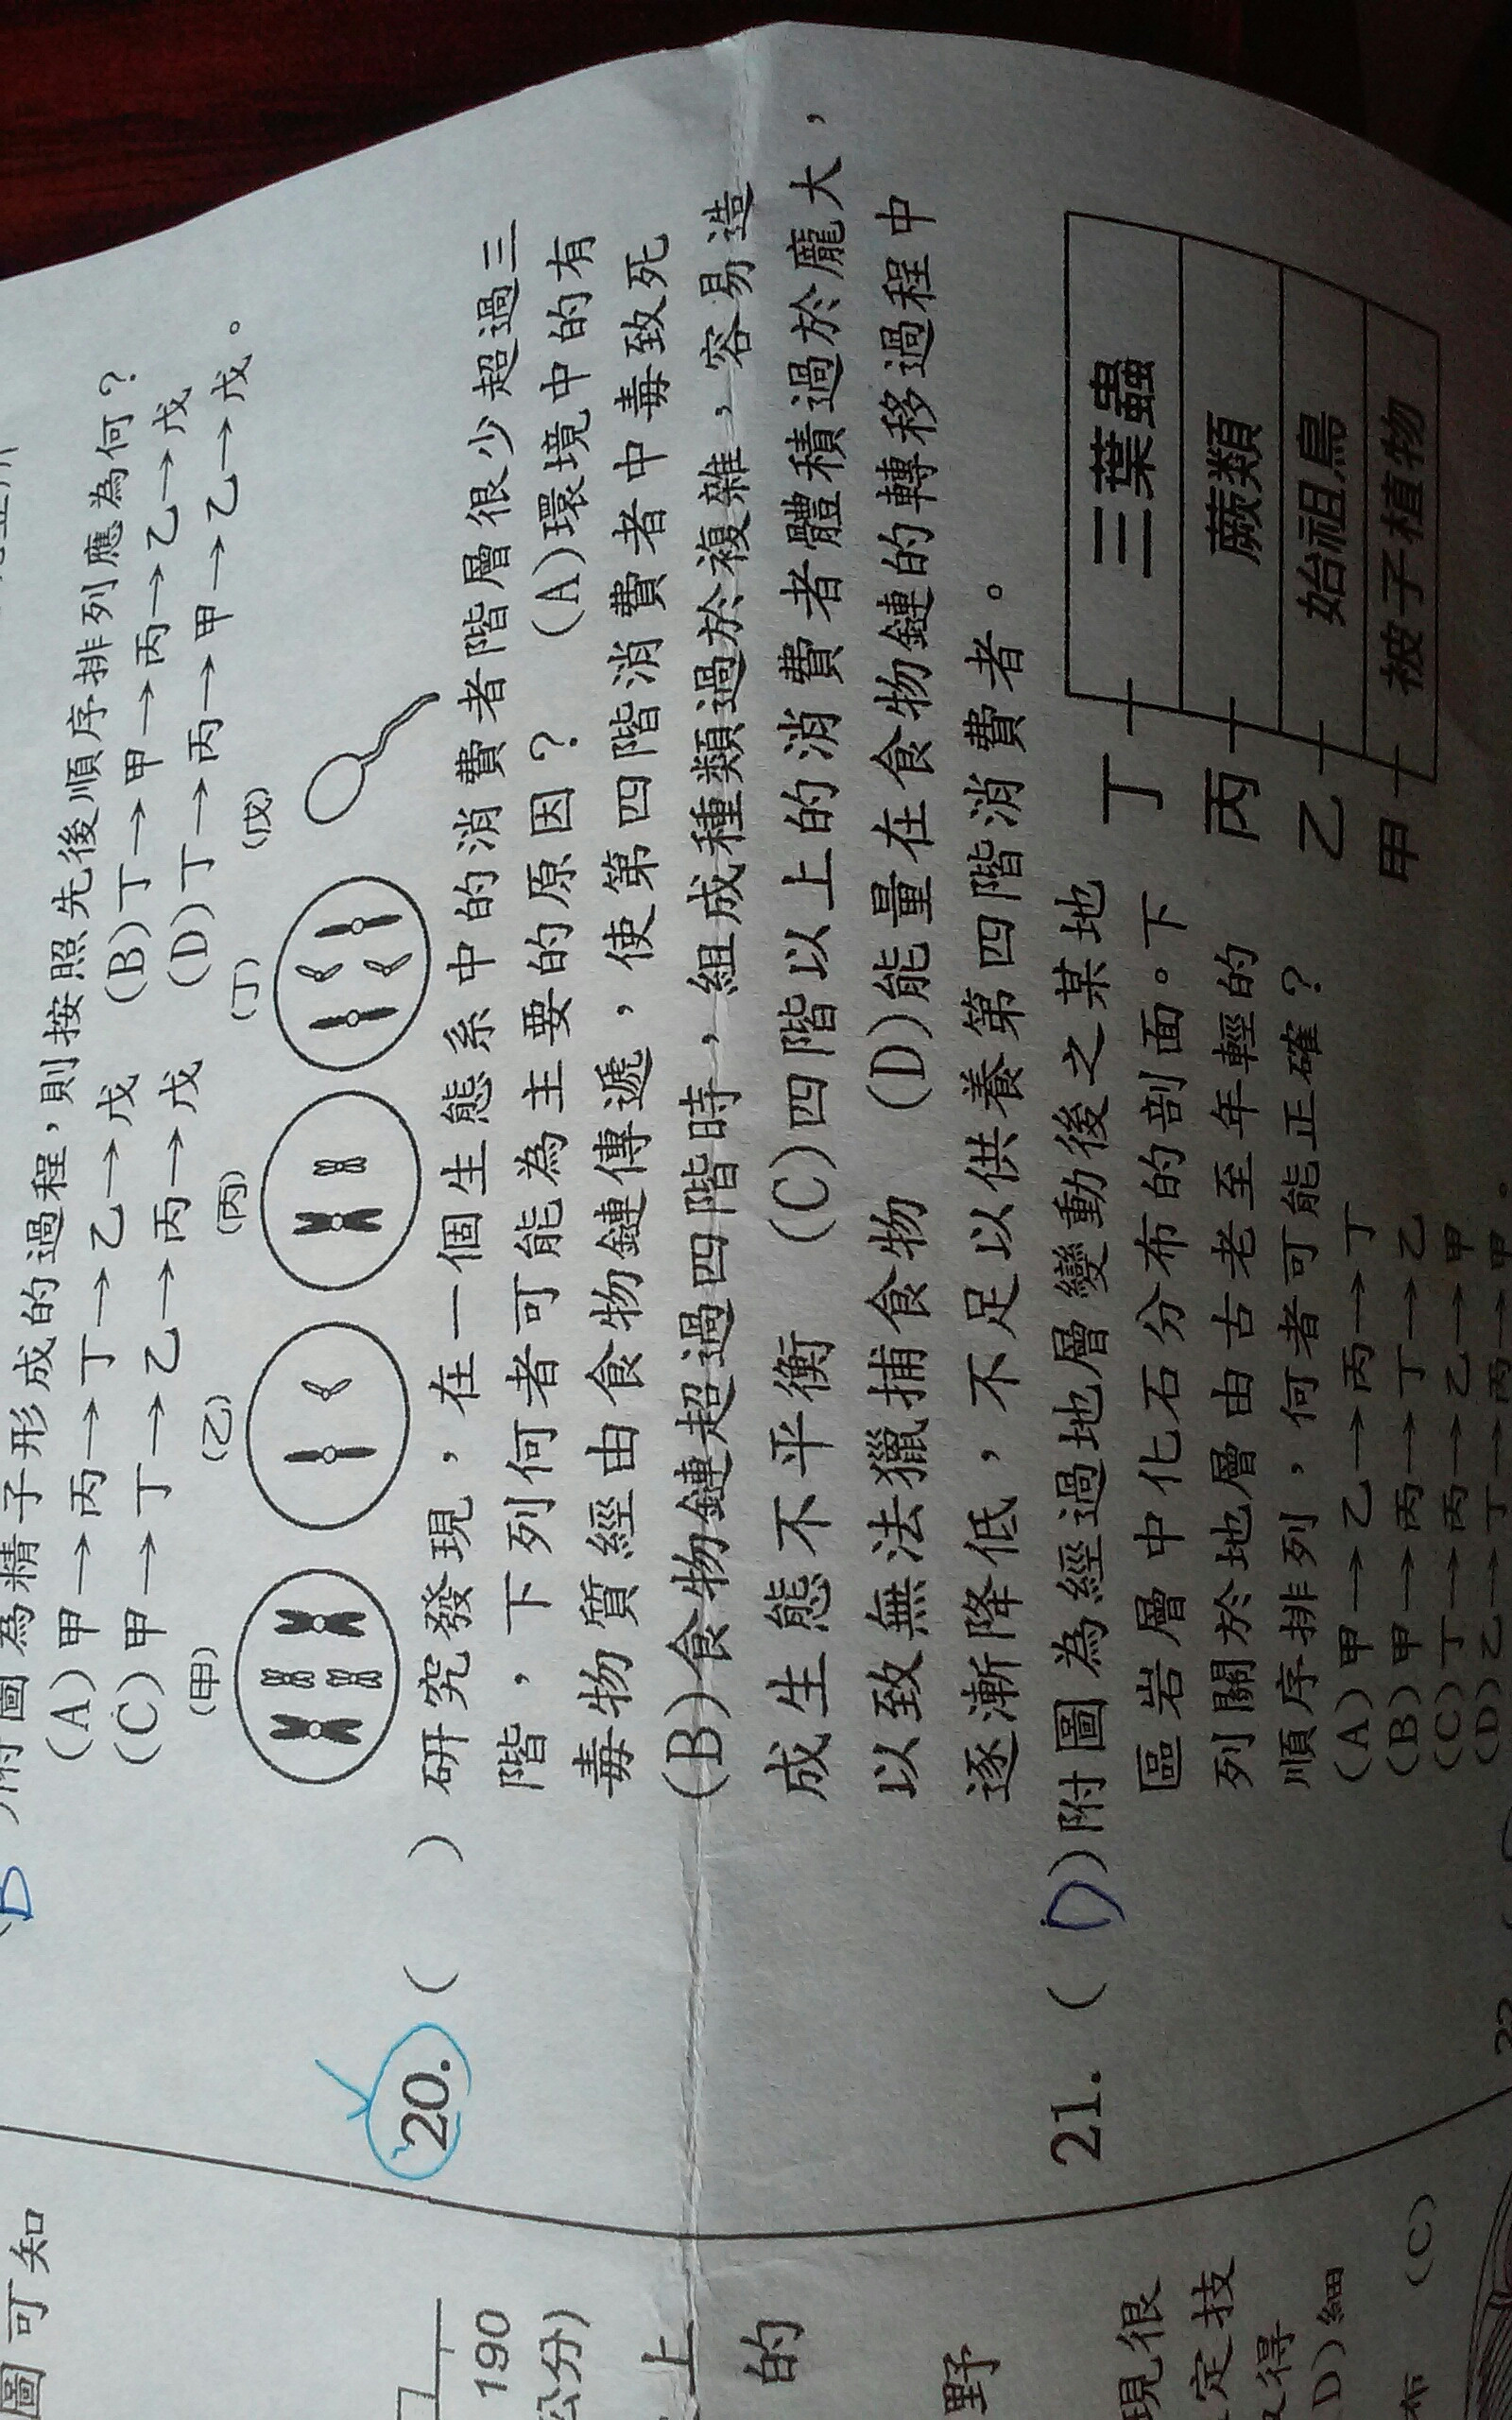 附圖為精子形成的過程,則按照先後順序排列應為何?
(A)甲→丙→丁→乙→戊 (B)丁→甲→丙→乙→戊
(C)甲→丁→乙→丙→戊 (D)丁→丙→甲→乙→戊。
(甲) (乙) (丙) (丁) (戊)
20. ( )研究發現,在一個生態系中的消費者階層很少超過三
階,下列何者可能為主要的原因? (A)環境中的有
毒物質經由食物鏈傳遞,使第四階消費者中毒致死
(B)食物鏈超過四階時,組成種類過於複雜,容易造
成生態不平衡 (C)四階以上的消費者體積過於龐大,
以致無法獵捕食物 (D)能量在食物鏈的轉移過程中
逐漸降低,不足以供養第四階消費者。
21. (D)附圖為經過地層變動後之某地
區岩層中化石分布的剖面。下
列關於地層由古老至年輕的
順序排列,何者可能正確?
(A)甲→乙→丙→丁
(B)甲→丙→丁→乙
(C)丁→丙→乙→甲
(D)乙→丁→丙→甲。
丁 三葉蟲
丙 蕨類
乙 始祖鳥
甲 被子植物
圖可知
190
公分)
上
的
野
現很
定技
得
D)細
布 (C)